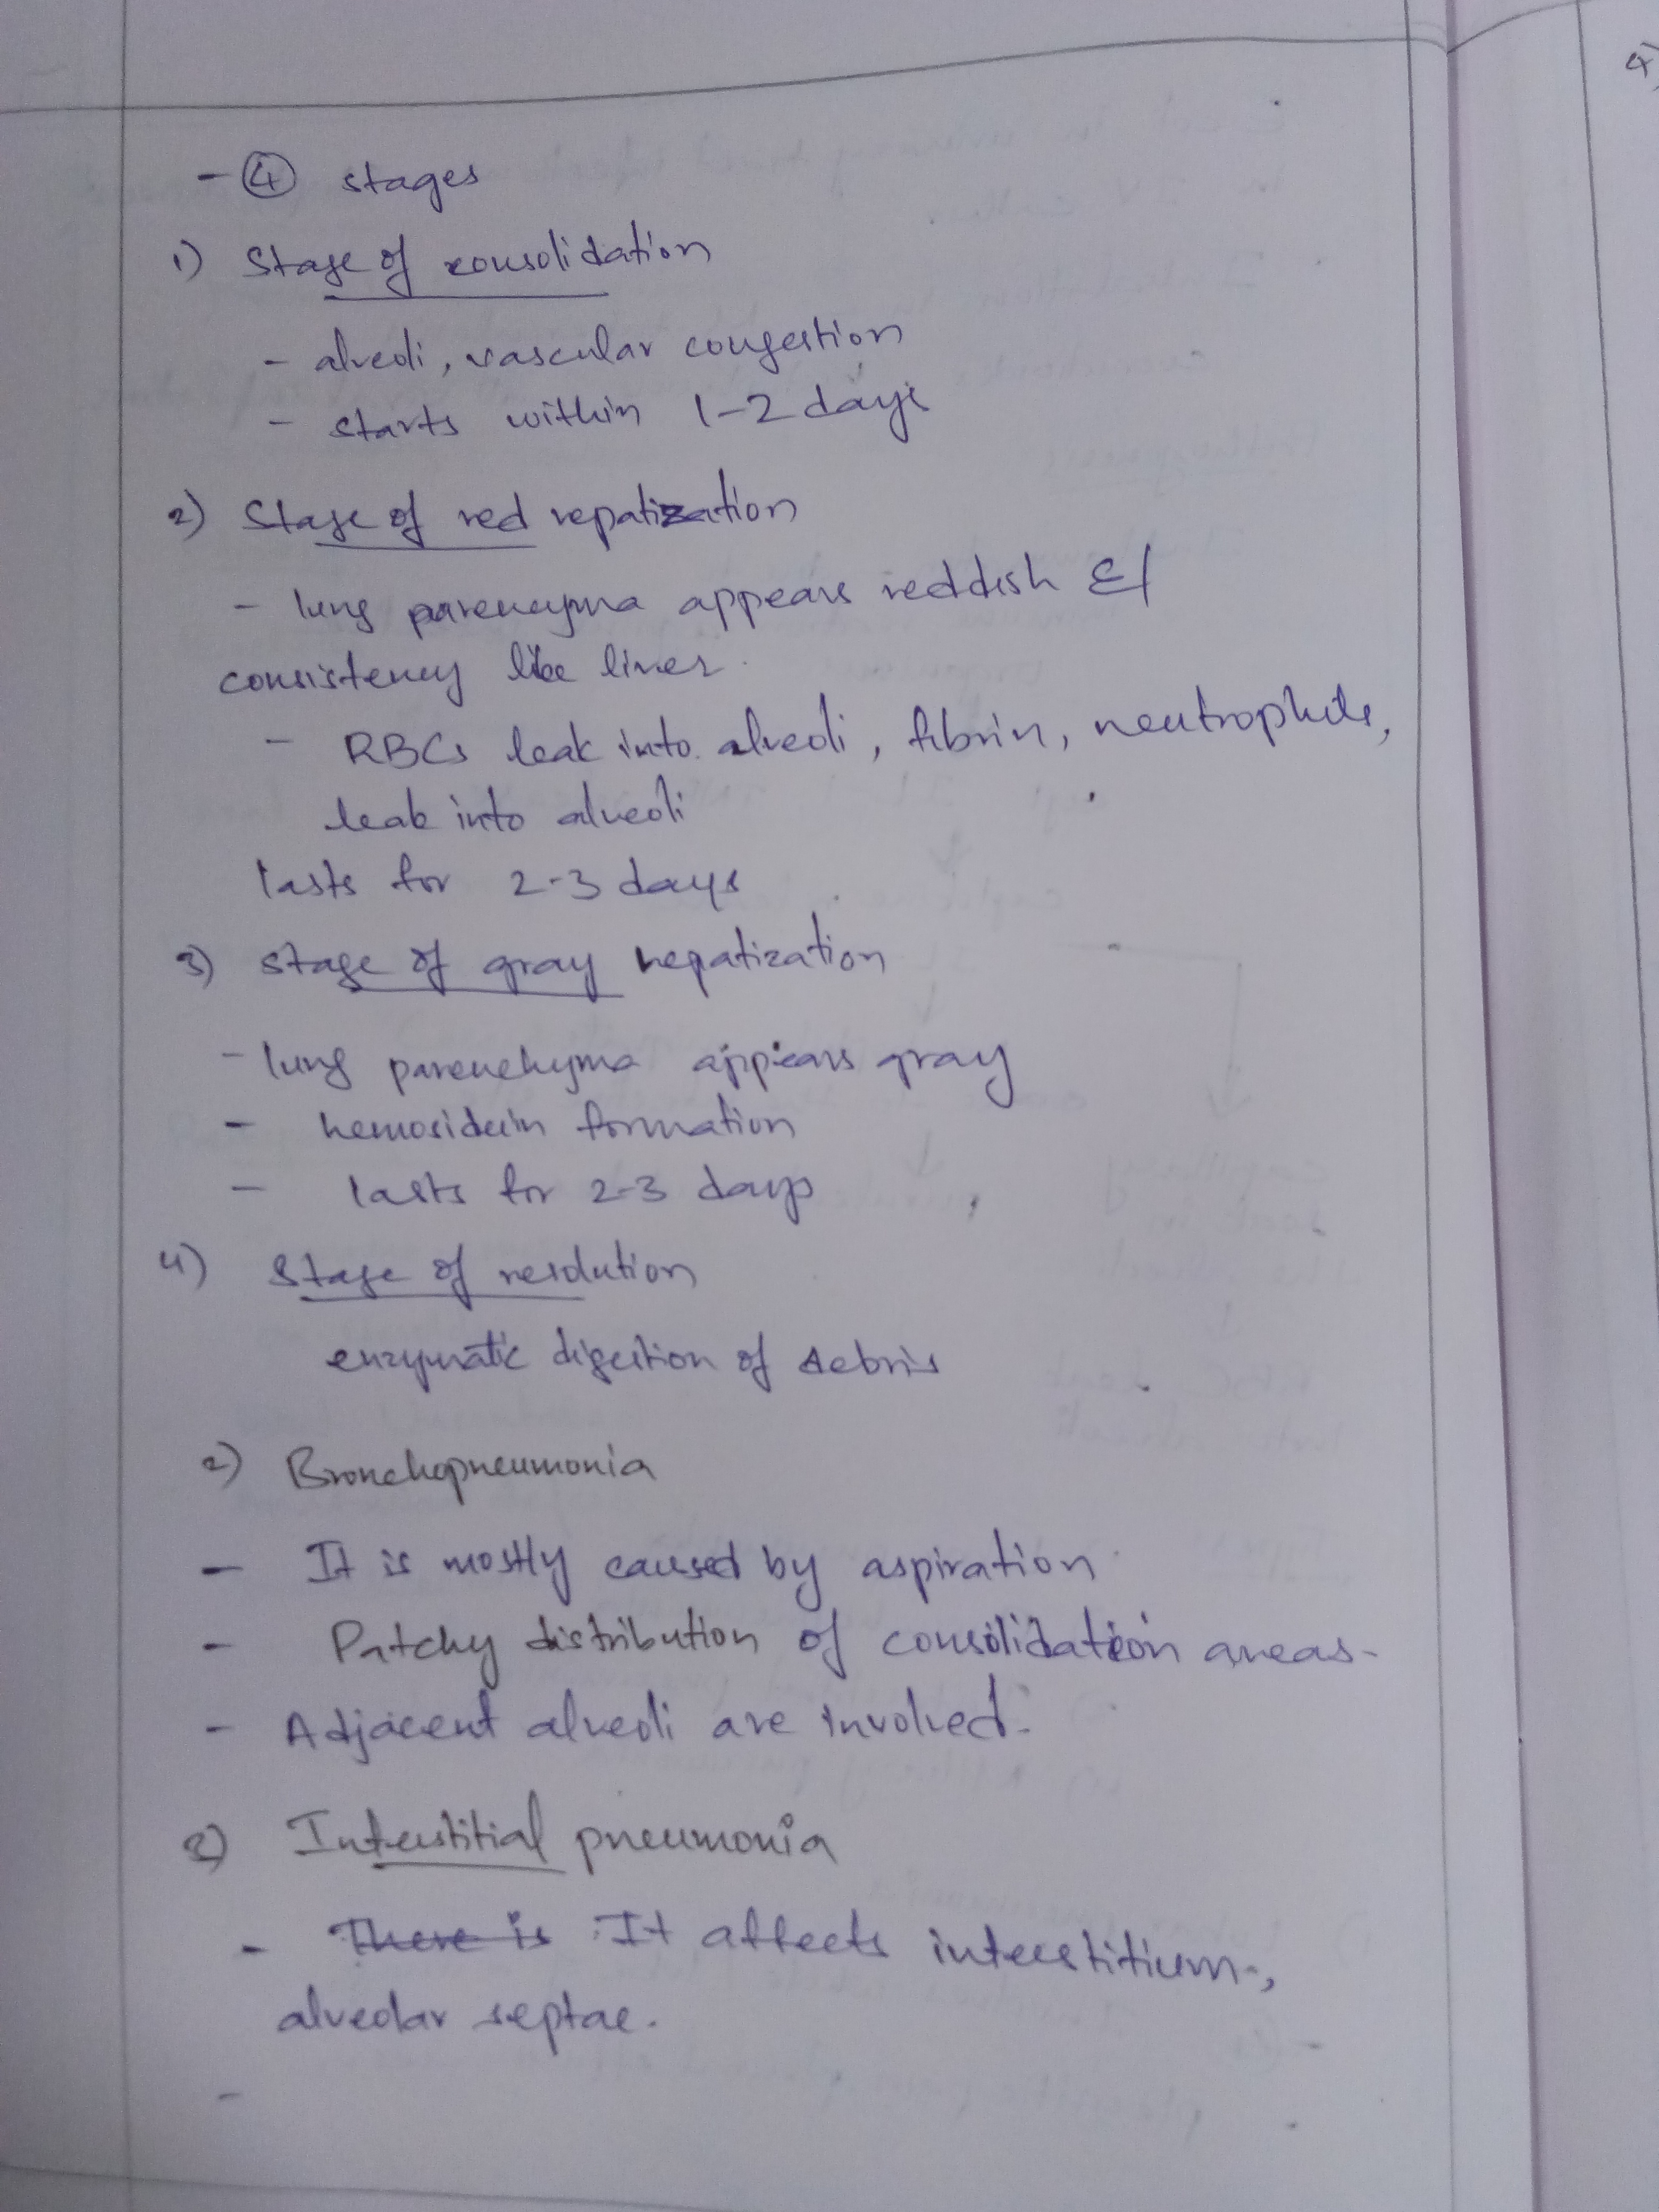 - ④ stages
1) Stage of consolidation
- alveoli, vascular congestion
- starts within 1-2 days
2) Stage of red repatization
- lung parencyma appears reddish &
consistency like liver.
- RBCs leak into alveoli, fibrin, neutrophils,
leak into alveoli
lasts for 2-3 days
3) stage of gray hepatization
- lung parenchyma appears gray
- hemosiderin formation
- lasts for 2-3 days
4) Stage of resolution
enzymatic digestion of debris
2) Bronchopneumonia
- It is mostly caused by aspiration.
- Patchy distribution of consolidation areas-
- Adjacent alveoli are involved.
3) Interstitial pneumonia
- There is It affects interstitium,
alveolar septae.
-
4)